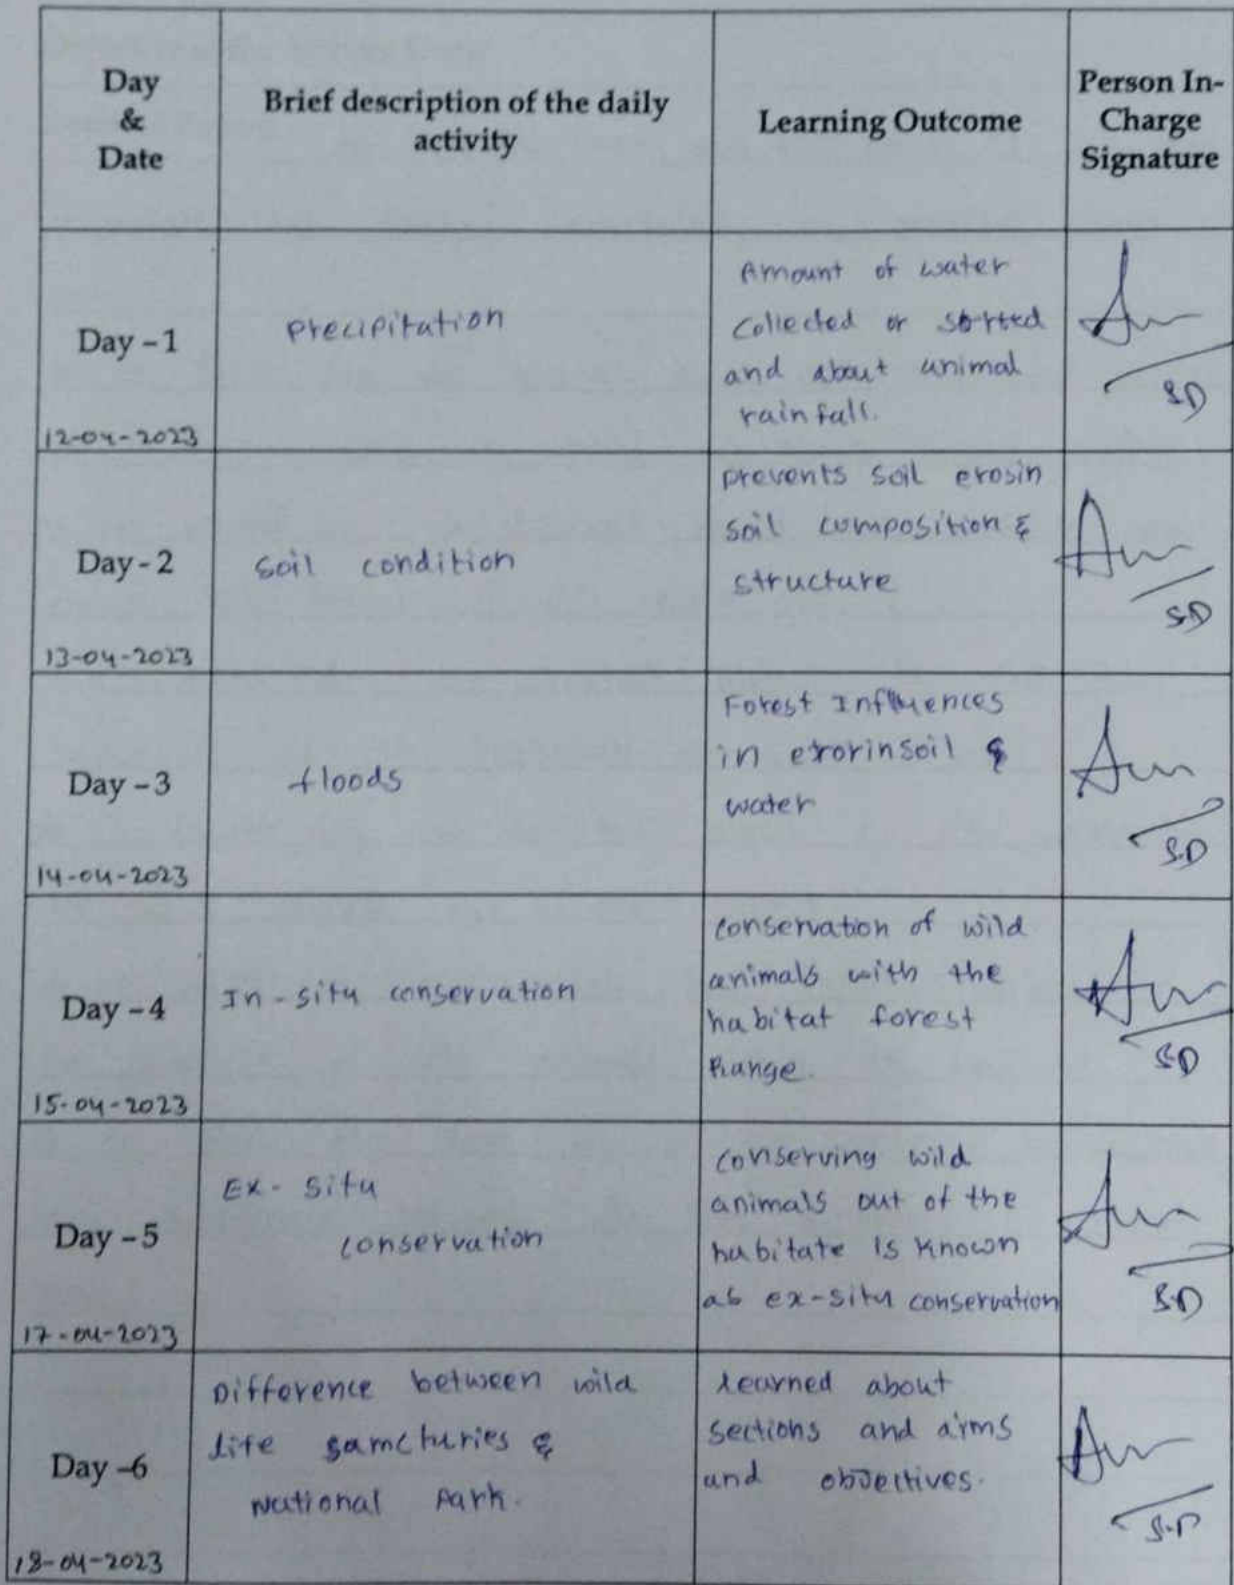 Day
&
Date
Brief description of the daily
activity
Learning Outcome
Person In-
Charge
Signature
Day - 1
12-04-2023
Precipitation
Amount of water
collected or
and about animal
rainfall.
S.D
Day - 2
13-04-2023
soil condition
prevents soil erosin
soil composition &
structure
S.D
Day - 3
14-04-2023
floods
Forest Influences
in erorinsoil &
water
S.D
Day - 4
15-04-2023
In-situ conservation
conservation of wild
animals with the
habitat forest
Range.
S.D
Day - 5
17-04-2023
Ex-situ
conservation
conserving wild
animals out of the
habitate is known
as ex-situ conservation
S.D
Day -6
18-04-2023
Difference between wild
life samcturies &
National Park.
learned about
sections and aims
and objectives.
S.D